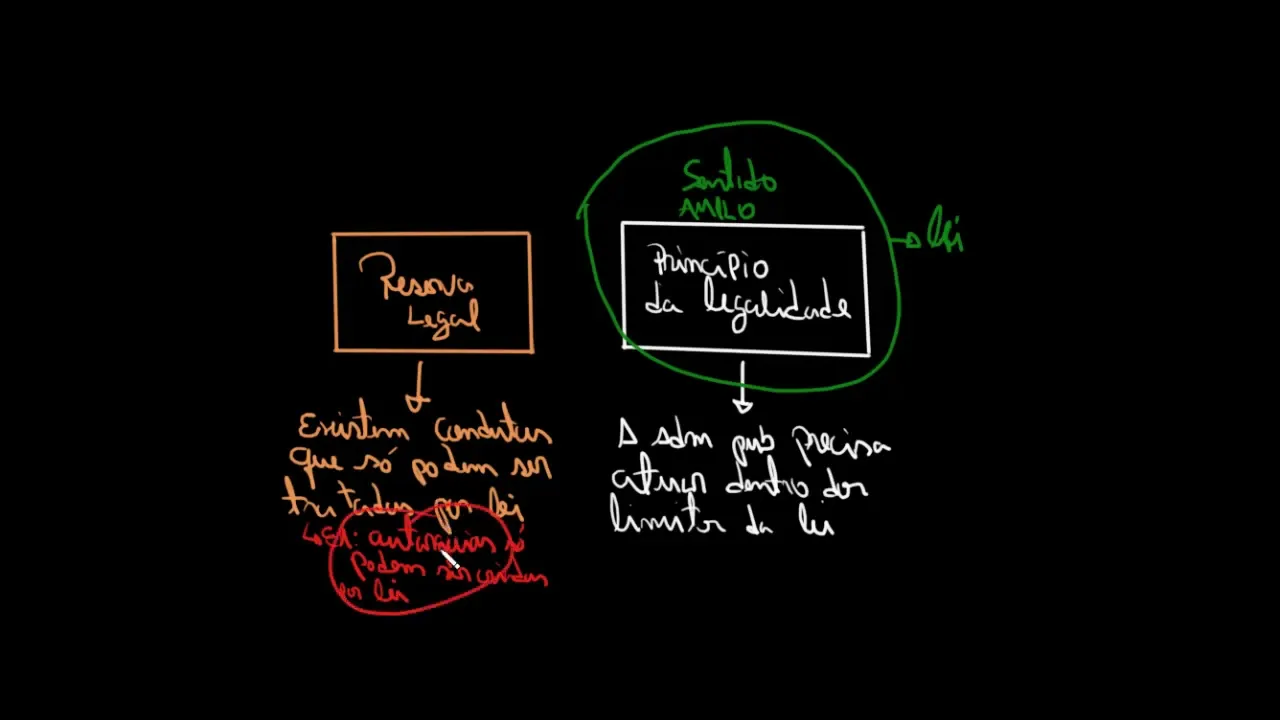 Reserva
Legal
Existem condutas
que só podem ser
tratadas por lei
↳ Ex: autarquias só
podem ser criadas
por lei
Sentido
AMPLO
Princípio
da legalidade
→ lei
A adm pub precisa
atuar dentro dos
limites da lei